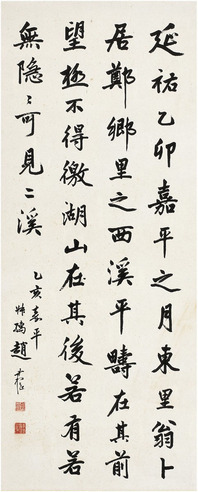 延祐乙卯嘉平之月東里翁卜
居鄭鄉里之西溪平疇在其前
望極不得徼湖山在其後若有若
無隱〻可見二溪
乙亥嘉平
趙